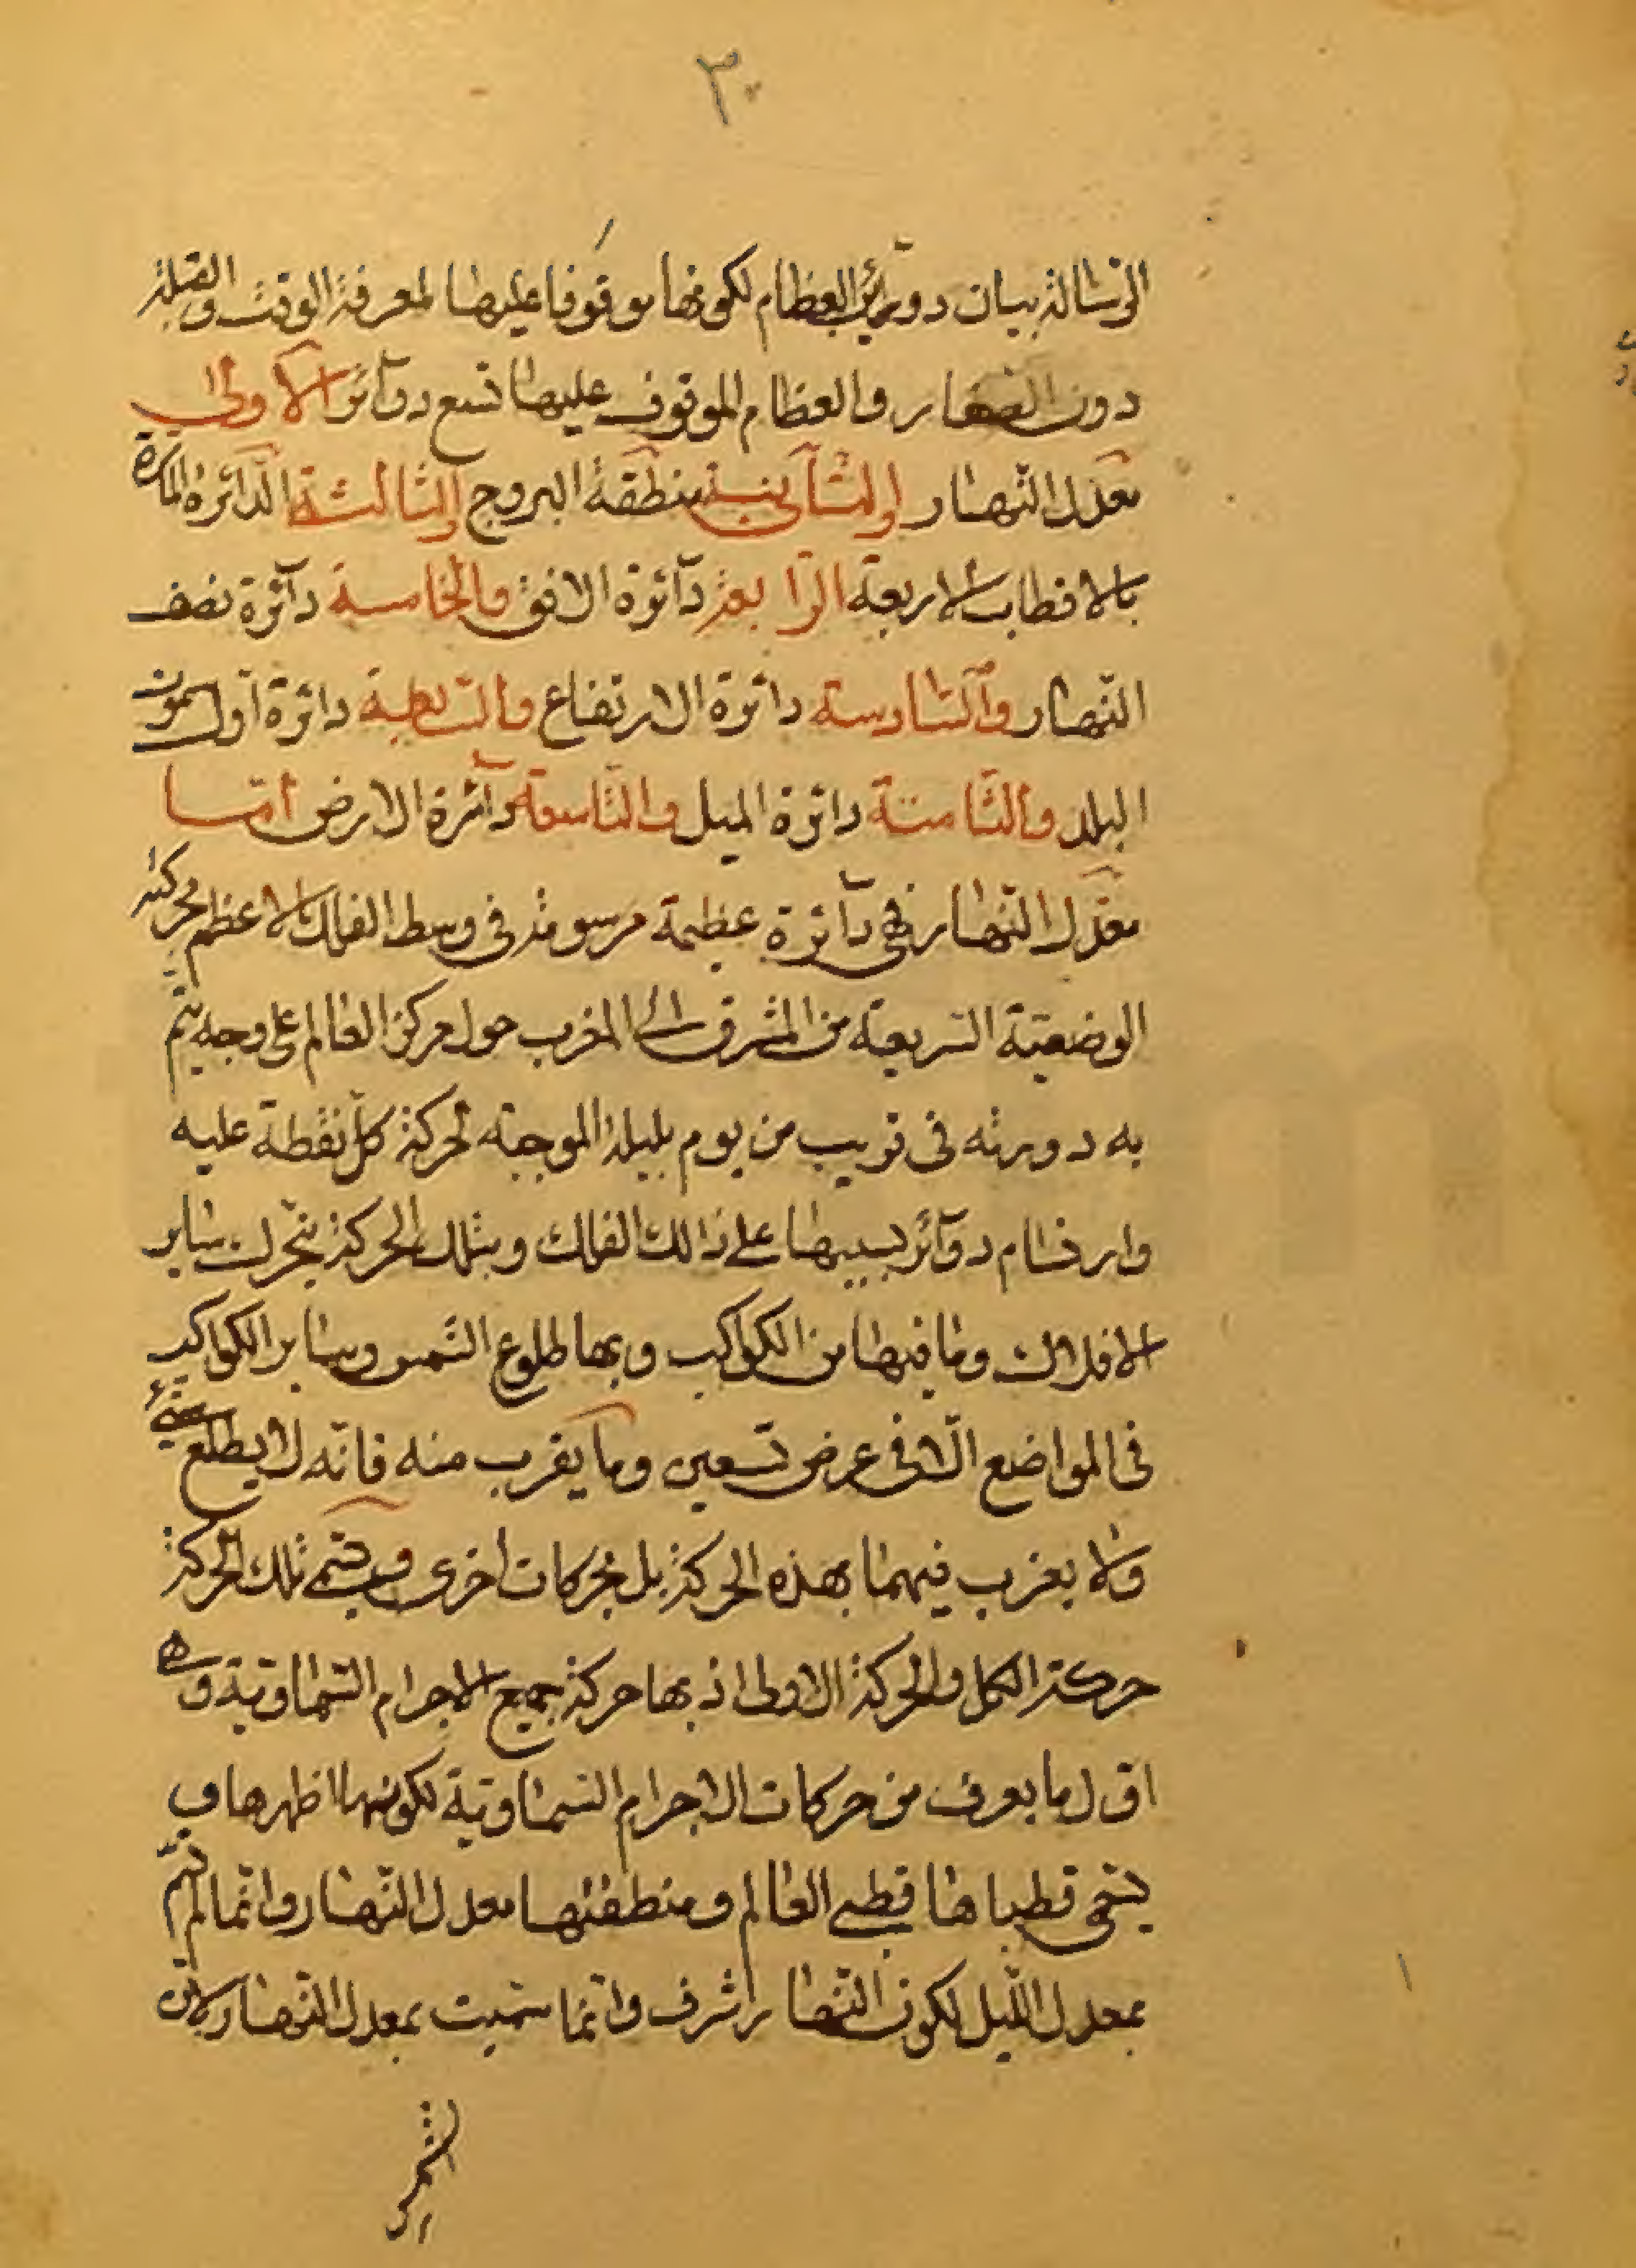 ٣٠
الرسالة بيان دوائر العظام لكونها موقوفا عليها لمعرفة الوقت والقبلة
دون الصغار والعظام الموقوف عليها تسع دوآئر الاولى
معدل النهار والثانية منطقة البروج والثالثة الدائرة المارة
بالاقطاب الاربعة الرابعة دآئرة الافق والخامسة دآئرة نصف
النهار والسادسة دائرة الارتفاع والسابعة دائرة اول سموت
البلد والثامنة دائرة الميل والتاسعة دآئرة الارض امّا
معدّل النّهار فهى دآئرة عظيمة مرسومة فى وسط الفلك الاعظم بحركته
الوضعيّة السريعة من المشرق الى المغرب حول مركز العالم على وجه يتم
به دورته فى قريب من يوم بليلة الموجبة لحركة كلّ نقطة عليه
وارتسام دوآئر بسببها على ذالك الفلك وبتلك الحركة يتحرّك ساير
الافلاك وما فيها من الكواكب وبها طلوع الشّمس وساير الكواكب
فى المواضع الّا فى عرض تسعين وما يقرب منه فانّه لا يطلع شىء
ولا يغرب فيهما بهذه الحركة بل بحركات اخرى ويسمّى تلك الحركة
حركة الكل والحركة الاولى اذ بها حركة جميع الاجرام السّماويّة وهى
اوّل ما يعرف من حركات الاجرام السّماويّة لكونها اظهرها و
يسمّى قطباها قطبى العالم ومنطقتها معدل النّهار وانّما لم تسمّ
بمعدل اللّيل لكون النّهار اشرف وانّما سمّيت بمعدل النّهار لانّ
الشمس